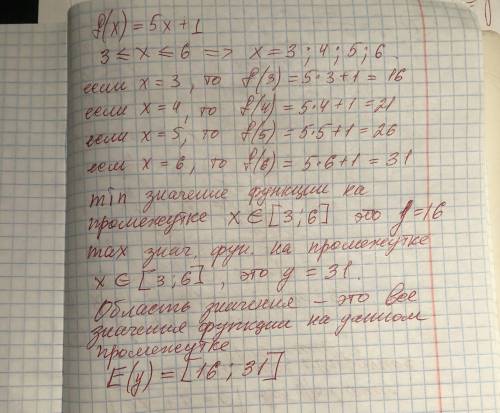 f(x) = 5x + 1
3 ≤ x ≤ 6 => x = 3; 4; 5; 6
если x = 3, то f(3) = 5·3+1 = 16
если x = 4, то f(4) = 5·4+1 = 21
если x = 5, то f(5) = 5·5+1 = 26
если x = 6, то f(6) = 5·6+1 = 31
min значение функции на
промежутке x ∈ [3; 6] это y = 16
max знач. фун. на промежутке
x ∈ [3; 6], это y = 31.
Область значения – это все
значения функции на данном
промежутке
E(y) = [16; 31]